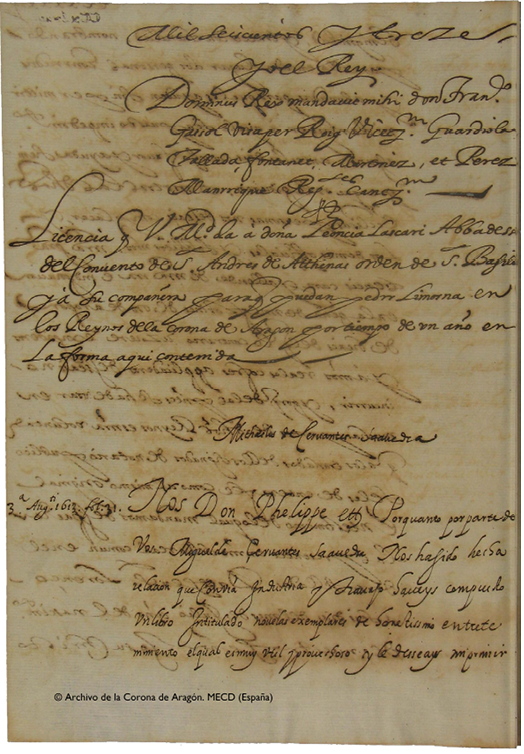 Mil Seiscientos y treze
Yo el Rey
Dominus Rex mandavit mihi don Franco
Gassol visa per Roig Vicecm. Guardiola
Fallada, fontanet, Martinez, et Perez
Manrrique Reg. Cancm.
Licencia q V. Md. da a doña Leoncia Lascari Abbadessa
del Convento de S. Andres de Atthenas orden de S. Basilio
y a su compañera para q puedan pedir Limosna en
los Reynos de la corona de Aragon por tiempo de un año en
La forma aqui contenida
Michaelis de Cervantes Saavedra
3a Augi 1613. fol. 31.
Nos Don Phelippe ett Porquanto por parte de
Vos Miguel de Cervantes Saavedra Nos ha sido hecha
relacion que con mª Industria y travajo haveys compuesto
un libro Intitulado novelas exemplares de honestissimo entrete
nimiento el qual es muy util y provechoso y le desseays imprimir
© Archivo de la Corona de Aragón. MECD (España)